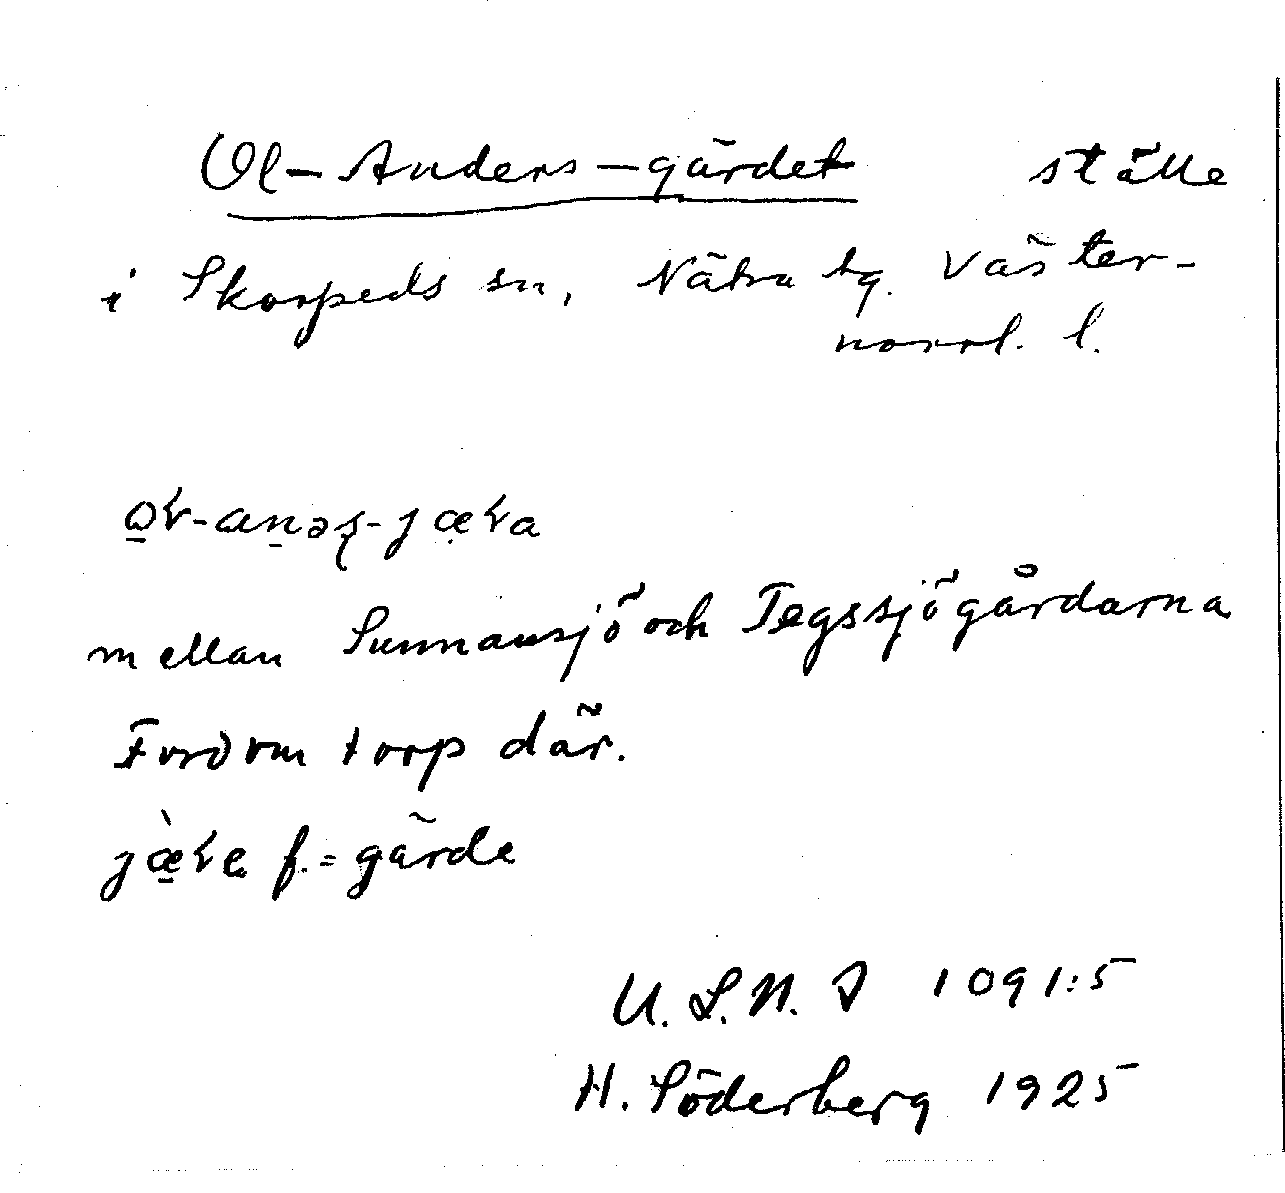 Ol-Anders-gärdet ställe
i Skorpeds sn, Nätra tg. Väster-
norrl. l.
mellan Sunnansjö och Tegssjögårdarna
Fordom torp där.
f. = gärde
U. L. M. A 1091:5
H. Söderberg 1925